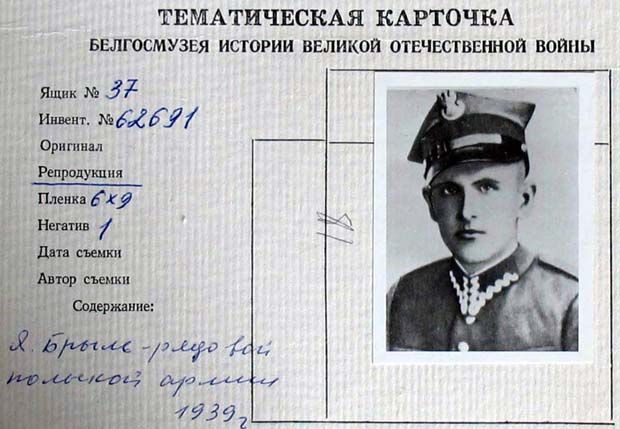 ТЕМАТИЧЕСКАЯ КАРТОЧКА
БЕЛГОСМУЗЕЯ ИСТОРИИ ВЕЛИКОЙ ОТЕЧЕСТВЕННОЙ ВОЙНЫ
Ящик № 37
Инвент. № 62691
Оригинал
Репродукция
Пленка 6×9
Негатив 1
Дата съемки
Автор съемки
Содержание:
Я. Брыль - рядовой
польской армии
1939г